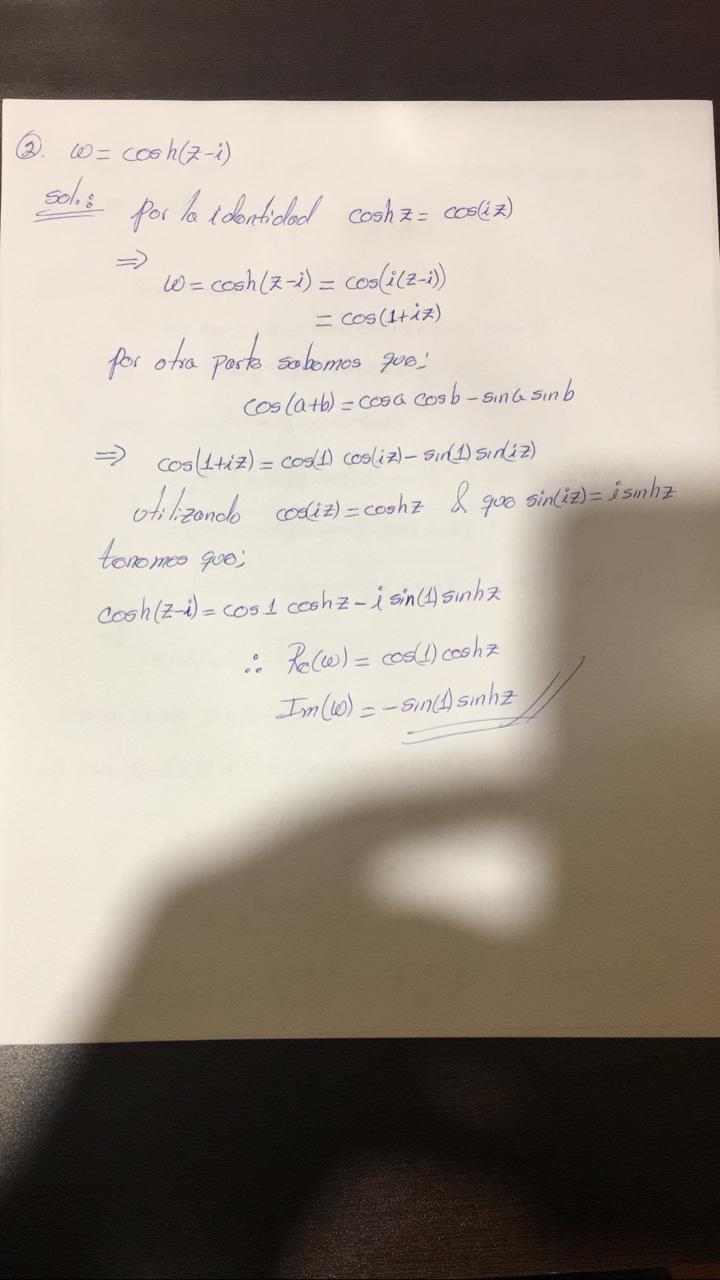 ②. ω = cosh(z-i)
sol.: por la identidad cosh z = cos(iz)
⇒
ω = cosh(z-i) = cos(i(z-i))
= cos(1+iz)
por otra parte sabemos que;
cos(a+b) = cosa cosb - sina sinb
⇒ cos(1+iz) = cos(1) cos(iz) - sin(1) sin(iz)
utilizando cos(iz) = coshz & que sin(iz) = i sinhz
tenemos que;
cosh(z-i) = cos1 coshz - i sin(1) sinhz
∴ Re(ω) = cos(1) coshz
Im(ω) = -sin(1) sinhz